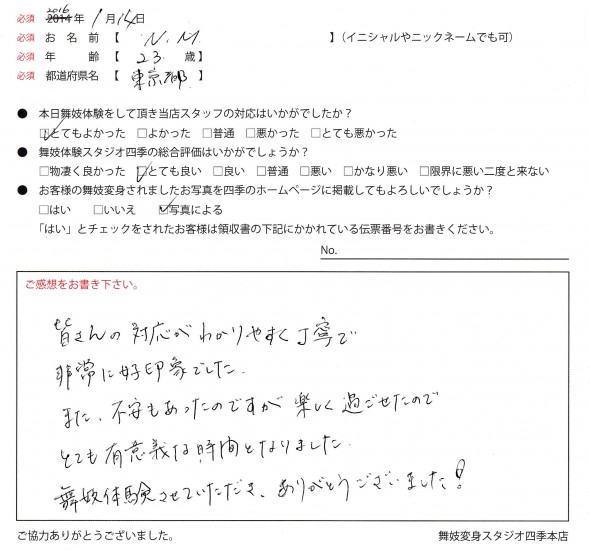 必須 2014 2016年 1月14日
必須 お 名 前 【 N.M. 】(イニシャルやニックネームでも可)
必須 年 齢 【 23 歳】
必須 都道府県名 【 東京都 】
● 本日舞妓体験をして頂き当店スタッフの対応はいかがでしたか?
☑とてもよかった □よかった □普通 □悪かった □とても悪かった
● 舞妓体験スタジオ四季の総合評価はいかがでしょうか?
□物凄く良かった ☑とても良い □良い □普通 □悪い □かなり悪い □限界に悪い二度と来ない
● お客様の舞妓変身されましたお写真を四季のホームページに掲載してもよろしいでしょうか?
□はい □いいえ ☑写真による
「はい」とチェックをされたお客様は領収書の下記にかかれている伝票番号をお書きください。
No.
ご感想をお書き下さい。
皆さんの対応がわかりやすく丁寧で
非常に好印象でした.
また、不安もあったのですが楽しく過ごせたので
とても有意義な時間となりました.
舞妓体験させていただき、ありがとうございました!
ご協力ありがとうございました。
舞妓変身スタジオ四季本店